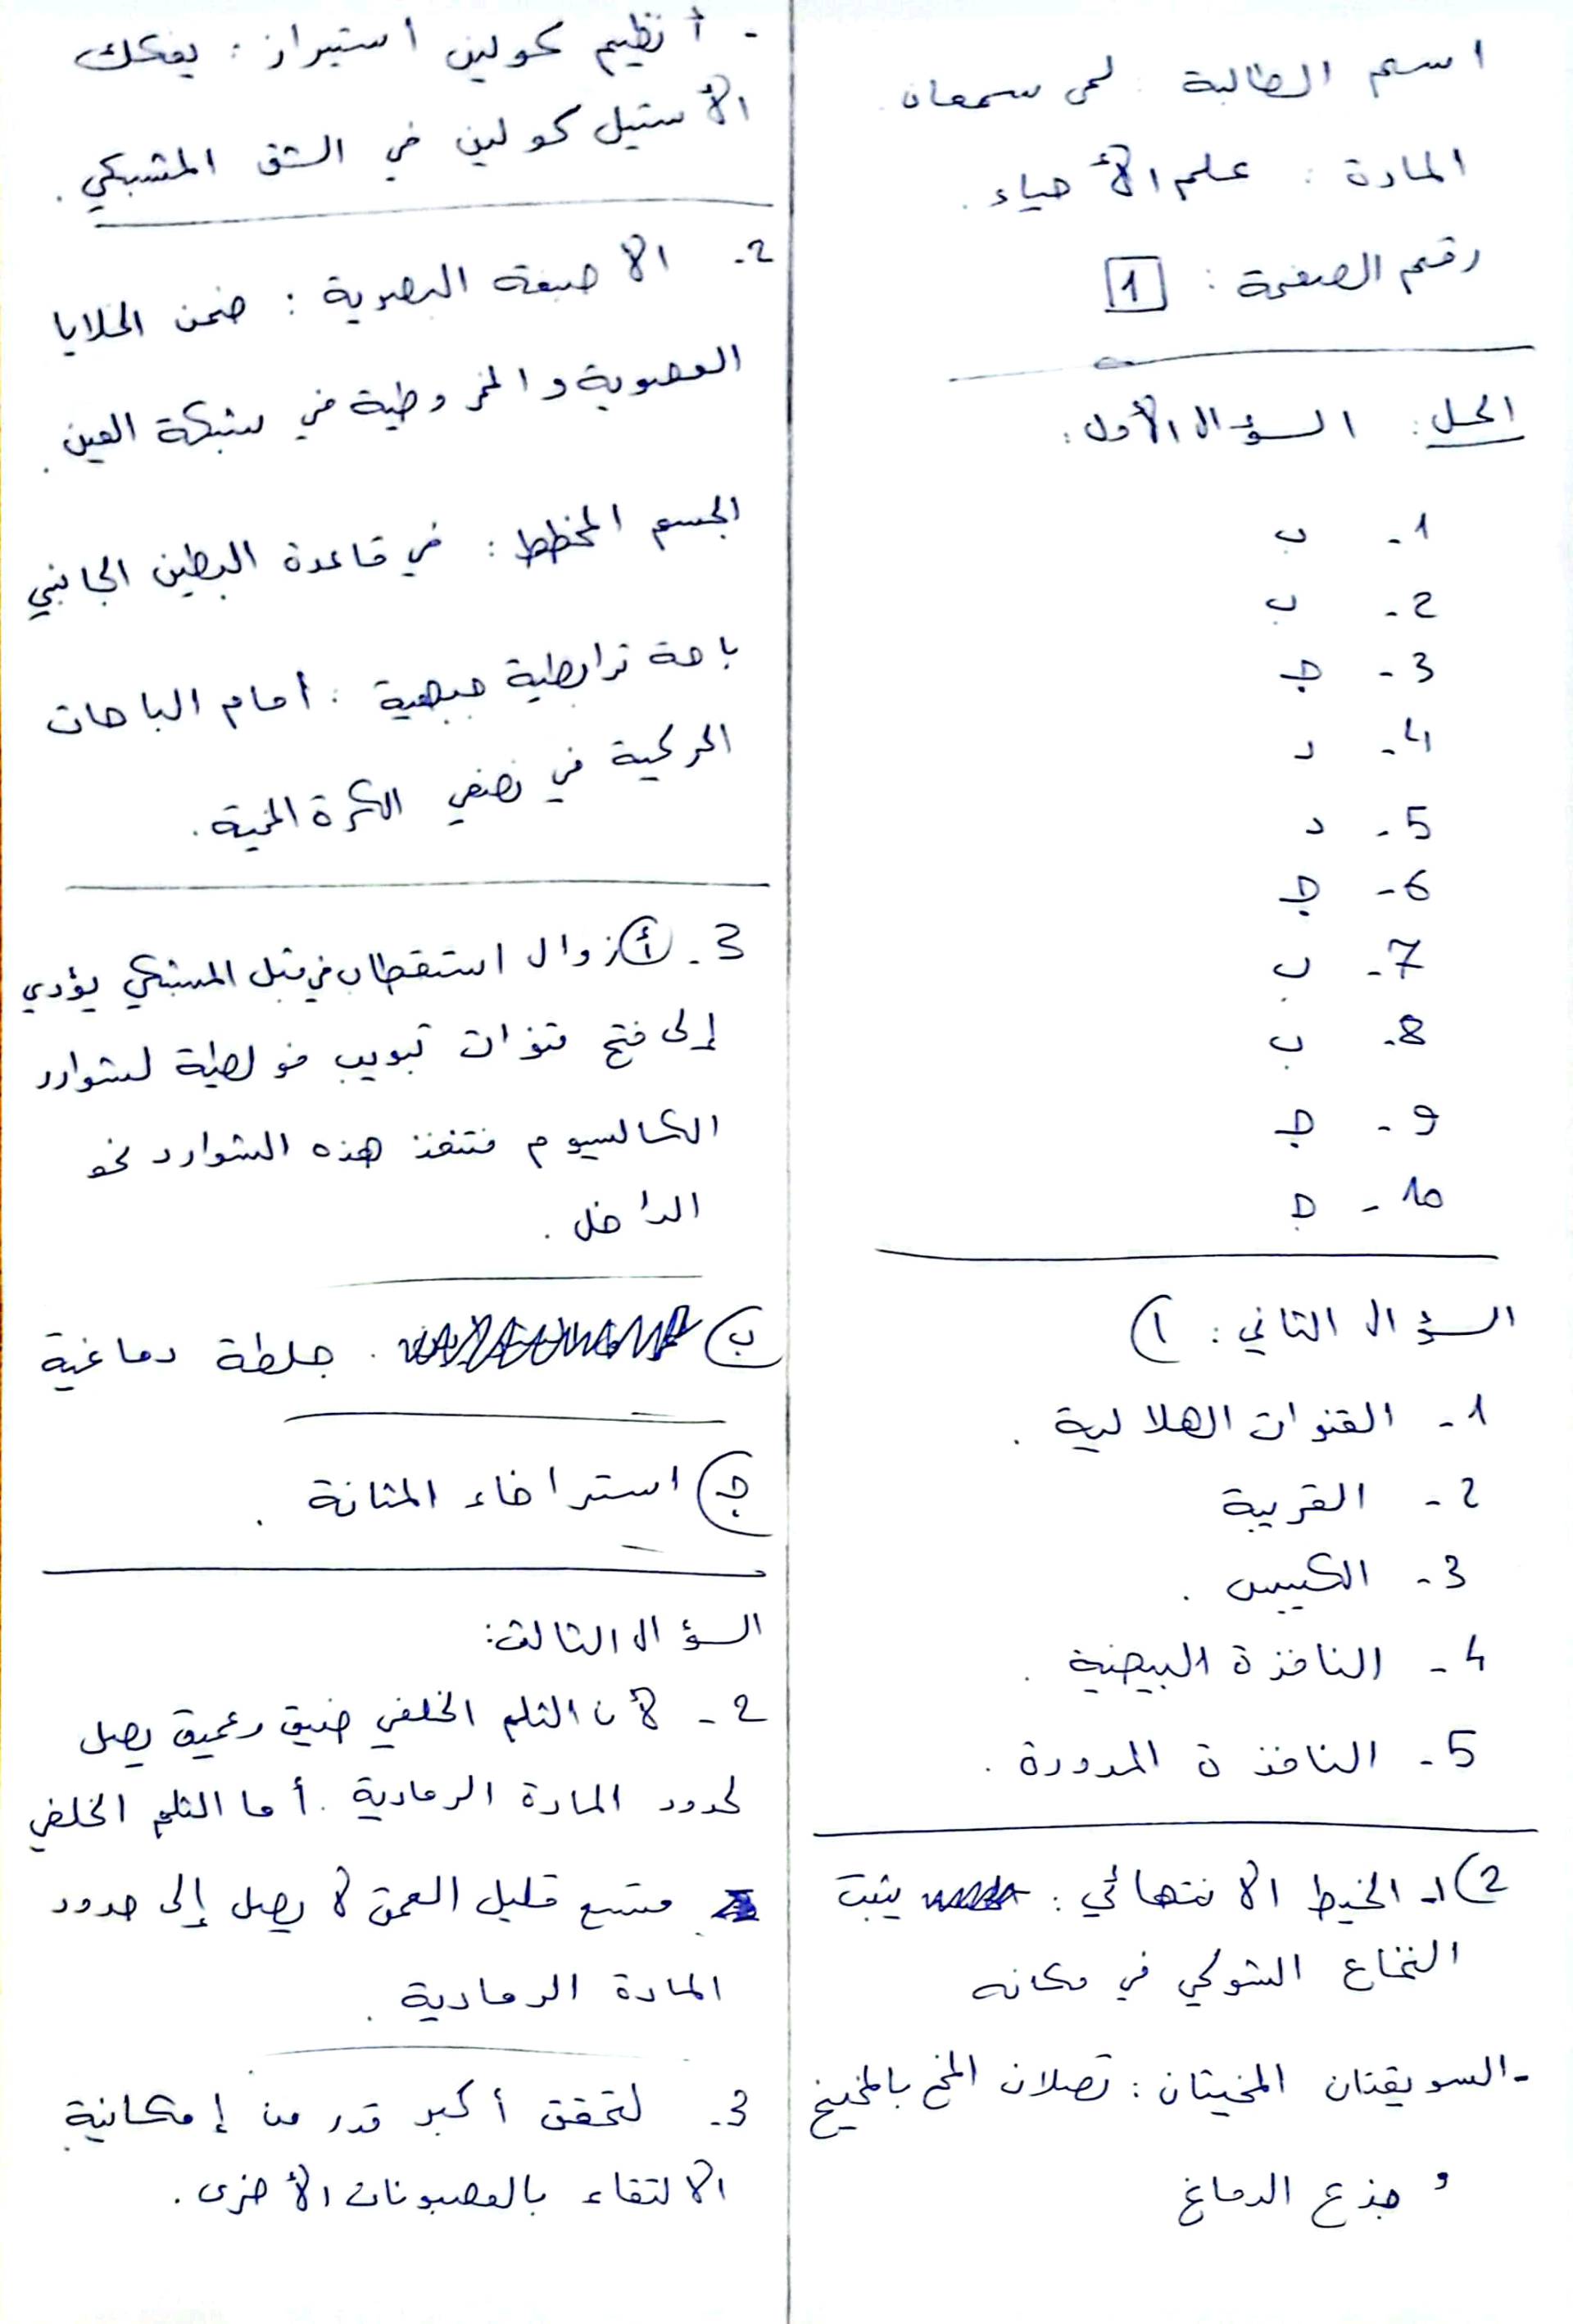 اسم الطالبة : لمى سمعان
المادة : علم الأحياء .
رقم الصفحة : 1
الحل : السؤال الأول :
1- ب
2- ب
3- ج
4- د
5- د
6- ج
7- ب
8- ب
9- ج
10- ج
السؤال الثاني : 1)
1- القنوات الهلالية .
2- القريبة
3- الكييس .
4- النافذة البيضية .
5- النافذة المدورة .
2) 1- الخيط الانتهائي : يثبت
النخاع الشوكي في مكانه
- السويقتان المخيتان : تصلان المخ بالمخيخ
و جذع الدماغ
- أنظيم كولين استيراز : يفكك
الأستيل كولين في الشق المشبكي .
2- الأصبغة البصرية : ضمن الخلايا
العصوية والمخروطية في شبكة العين .
الجسم المخطط : في قاعدة البطين الجانبي
باحة ترابطية جبهية : أمام الباحات
الحركية في نصفي الكرة المخية .
3- أ) زوال استقطاب في قبل المشبكي يؤدي
إلى فتح قنوات تبويب فولطية لشوارد
الكالسيوم فتنفذ هذه الشوارد نحو
الداخل .
ب) . جلطة دماغية
ج) استرخاء المثانة .
السؤال الثالث :
2- لأن الثلم الخلفي ضيق وعميق يصل
لحدود المادة الرمادية . أما الثلم الخلفي
متسع قليل العمق لا يصل إلى حدود
المادة الرمادية .
3- لتحقق أكبر قدر من إمكانية
الالتقاء بالعصبونات الأخرى .